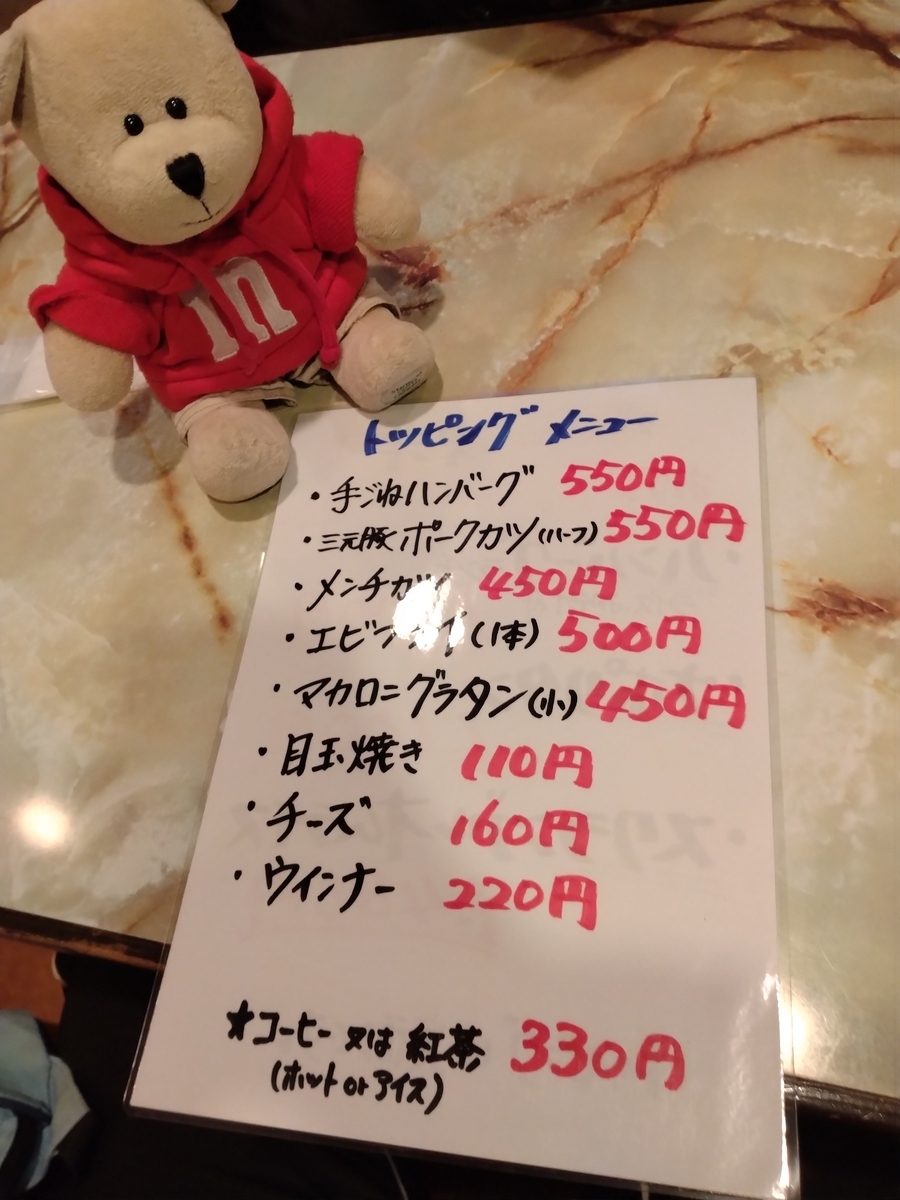 10
トッピング メニュー
・手ごねハンバーグ 550円
・三元豚ポークカツ(ハーフ) 550円
・メンチカツ 450円
・エビフライ(1本) 500円
・マカロニグラタン(小) 450円
・目玉焼き 110円
・チーズ 160円
・ウインナー 220円
★コーヒー 又は 紅茶 330円
(ホット or アイス)